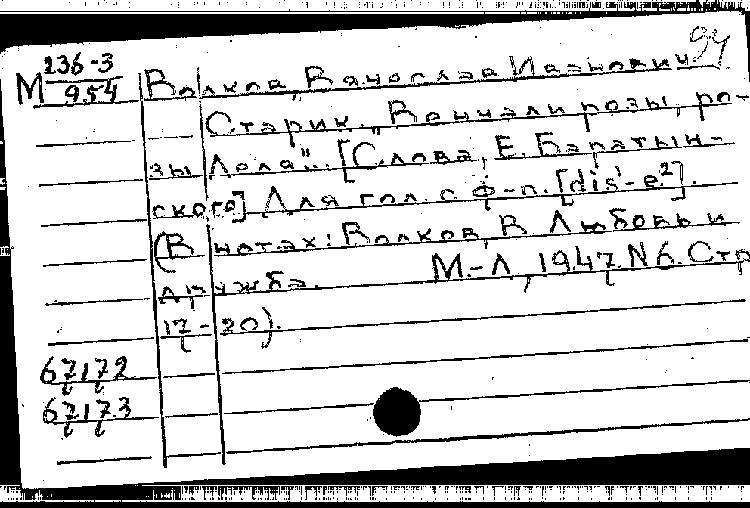 94
М 236-3 Волков, Вячеслав Иванович
954
Старик. „Венчали розы, ро-
зы Леля"... [Слова, Е. Баратын-
ского] Для гол. с ф-п. [dis¹-e²].
(В нотах: Волков, В. Любовь и
дружба. М.-Л., 1947. N 6. Стр
17-20).
67172
67173